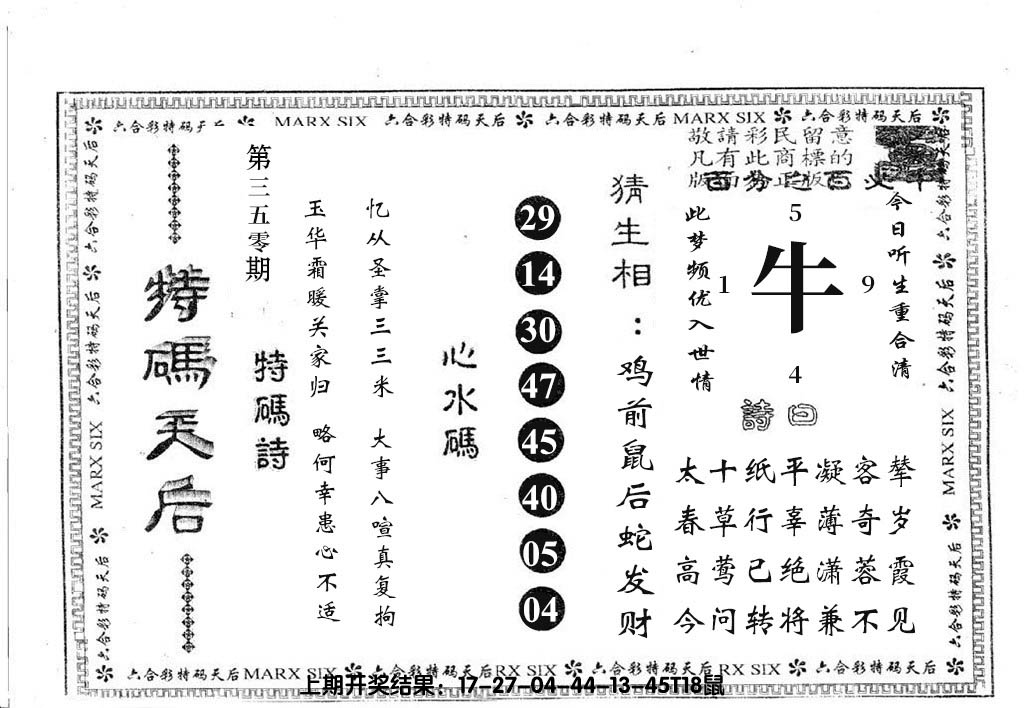 六合彩特码天后 MARX SIX 六合彩特码天后 六合彩特码天后 MARX SIX 六合彩特码天后
敬請彩民留意
凡有此商標的
版面為正版
今日听生重合清
5
1 牛 9
4
此梦频优入世情
詩曰
辇岁霞见
客奇蓉不
凝薄潇兼
平辜绝将
纸行已转
十草莺问
太春高今
猜生相：鸡前鼠后蛇发财
29
14
30
47
45
40
05
04
心水碼
忆从圣掌三三米 大事八喧真复拘
玉华霜暖关家归 略何幸患心不适
第三五零期
特碼詩
特碼天后
六合彩特码天后
六合彩特码天后
MARX SIX
六合彩特码天后
六合彩特码天后
六合彩特码天后
MARX SIX
六合彩特码天后
六合彩特码天后 MARX SIX 六合彩特码天后 RX SIX 六合彩特码天后 RX SIX 六合彩特码天后
上期开奖结果：17-27-04-44-13-45T18鼠